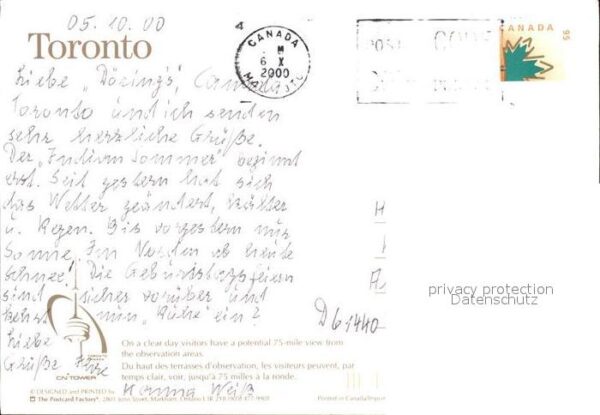 05.10.00
Toronto
CANADA
6 X
2000
CANADA
95
Liebe "Döring's, Canada,
Toronto und ich senden
sehr herzliche Grüße.
Der "Indian Sommer" beginnt
erst. Seit gestern hat sich
das Wetter geändert, kälter
u. Regen. Bis vorgestern nur
Sonne. Im Norden ab heute
Schnee! Die Geburtstagsfeiern
sind sicher vorüber und
kehrt nun "Ruhe" ein?
Liebe
Grüße
Hanna Weiß
D 61440
privacy protection
Datenschutz
On a clear day visitors have a potential 75-mile view from
the observation areas.
Du haut des terrasses d'observation, les visiteurs peuvent, par
temps clair, voir, jusqu'à 75 milles à la ronde.
CN TOWER
© DESIGNED and PRINTED by
The Postcard Factory
Printed in Canada/Imprimé